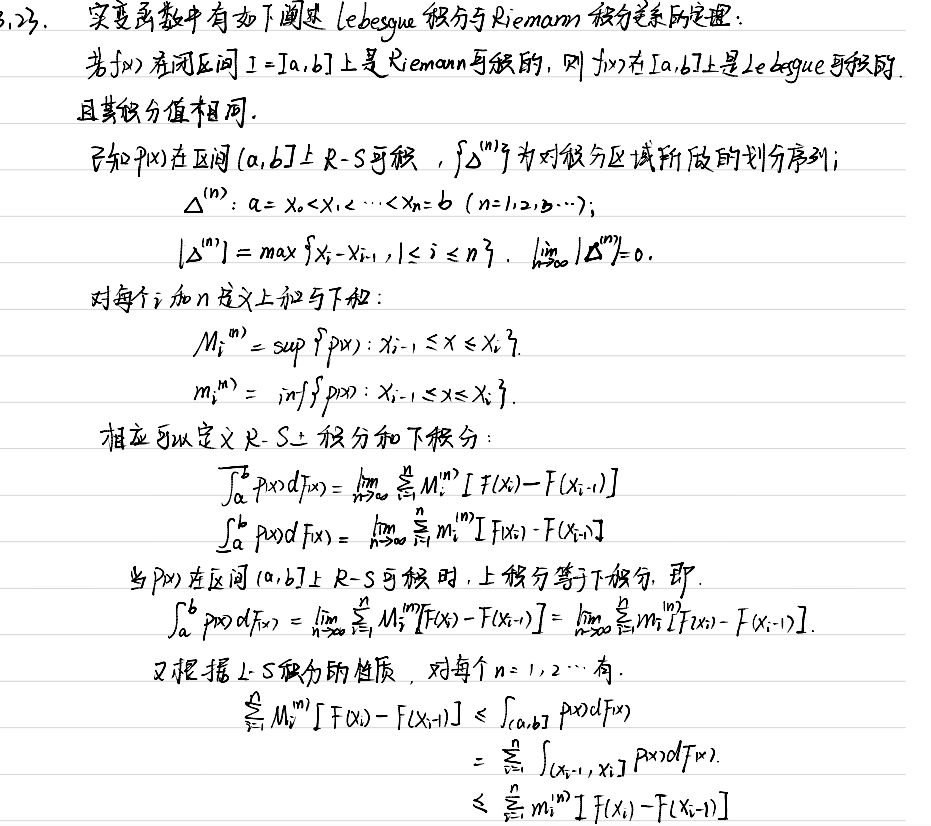 3.23. 实变函数中有如下阐述 Lebesgue 积分与 Riemann 积分关系的定理：
若f(x) 在闭区间 I=[a,b] 上是 Riemann 可积的, 则 f(x)在[a,b]上是Lebesgue可积的.
且其积分值相同.
已知 φ(x)在区间 (a,b]上 R-S可积，{Δ⁽ⁿ⁾}为对积分区域所做的划分序列;
Δ⁽ⁿ⁾: a= x₀<x₁<⋯<xₙ=b (n=1,2,3⋯);
|Δ⁽ⁿ⁾| = max {xᵢ-xᵢ₋₁, 1≤ i ≤ n}. lim_{n→∞} |Δ⁽ⁿ⁾|=0.
对每个i和n定义上和与下和：
Mᵢ⁽ⁿ⁾ = sup {φ(x): xᵢ₋₁ ≤ x ≤ xᵢ}.
mᵢ⁽ⁿ⁾ = inf{φ(x): xᵢ₋₁ ≤ x ≤ xᵢ}.
相应可以定义 R-S上积分和下积分：
∫̅ₐᵇ φ(x)dF(x) = lim_{n→∞} ∑_{i=1}^{n} Mᵢ⁽ⁿ⁾ [F(xᵢ)-F(xᵢ₋₁)]
∫̲ₐᵇ φ(x)dF(x) = lim_{n→∞} ∑_{i=1}^{n} mᵢ⁽ⁿ⁾ [F(xᵢ)-F(xᵢ₋₁)]
当φ(x)在区间 (a,b]上 R-S可积时, 上积分等于下积分, 即.
∫ₐᵇ φ(x)dF(x) = lim_{n→∞} ∑_{i=1}^{n} Mᵢ⁽ⁿ⁾[F(xᵢ)-F(xᵢ₋₁)] = lim_{n→∞} ∑_{i=1}^{n} mᵢ⁽ⁿ⁾[F(xᵢ)-F(xᵢ₋₁)].
又根据 L-S积分的性质，对每个n=1,2⋯有.
∑_{i=1}^{n} Mᵢ⁽ⁿ⁾ [F(xᵢ)-F(xᵢ₋₁)] ≤ ∫_{(a,b]} φ(x)dF(x)
= ∑_{i=1}^{n} ∫_{(xᵢ₋₁, xᵢ]} φ(x)dF(x).
≤ ∑_{i=1}^{n} mᵢ⁽ⁿ⁾ [F(xᵢ)-F(xᵢ₋₁)]